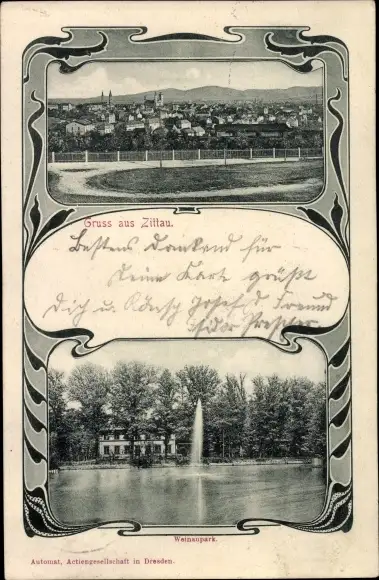 Gruss aus Zittau.
Bestens dankend für
Deine Karte grüßt
Dich u. Josef d. Freund
Weinaupark.
Automat, Actiengesellschaft in Dresden.